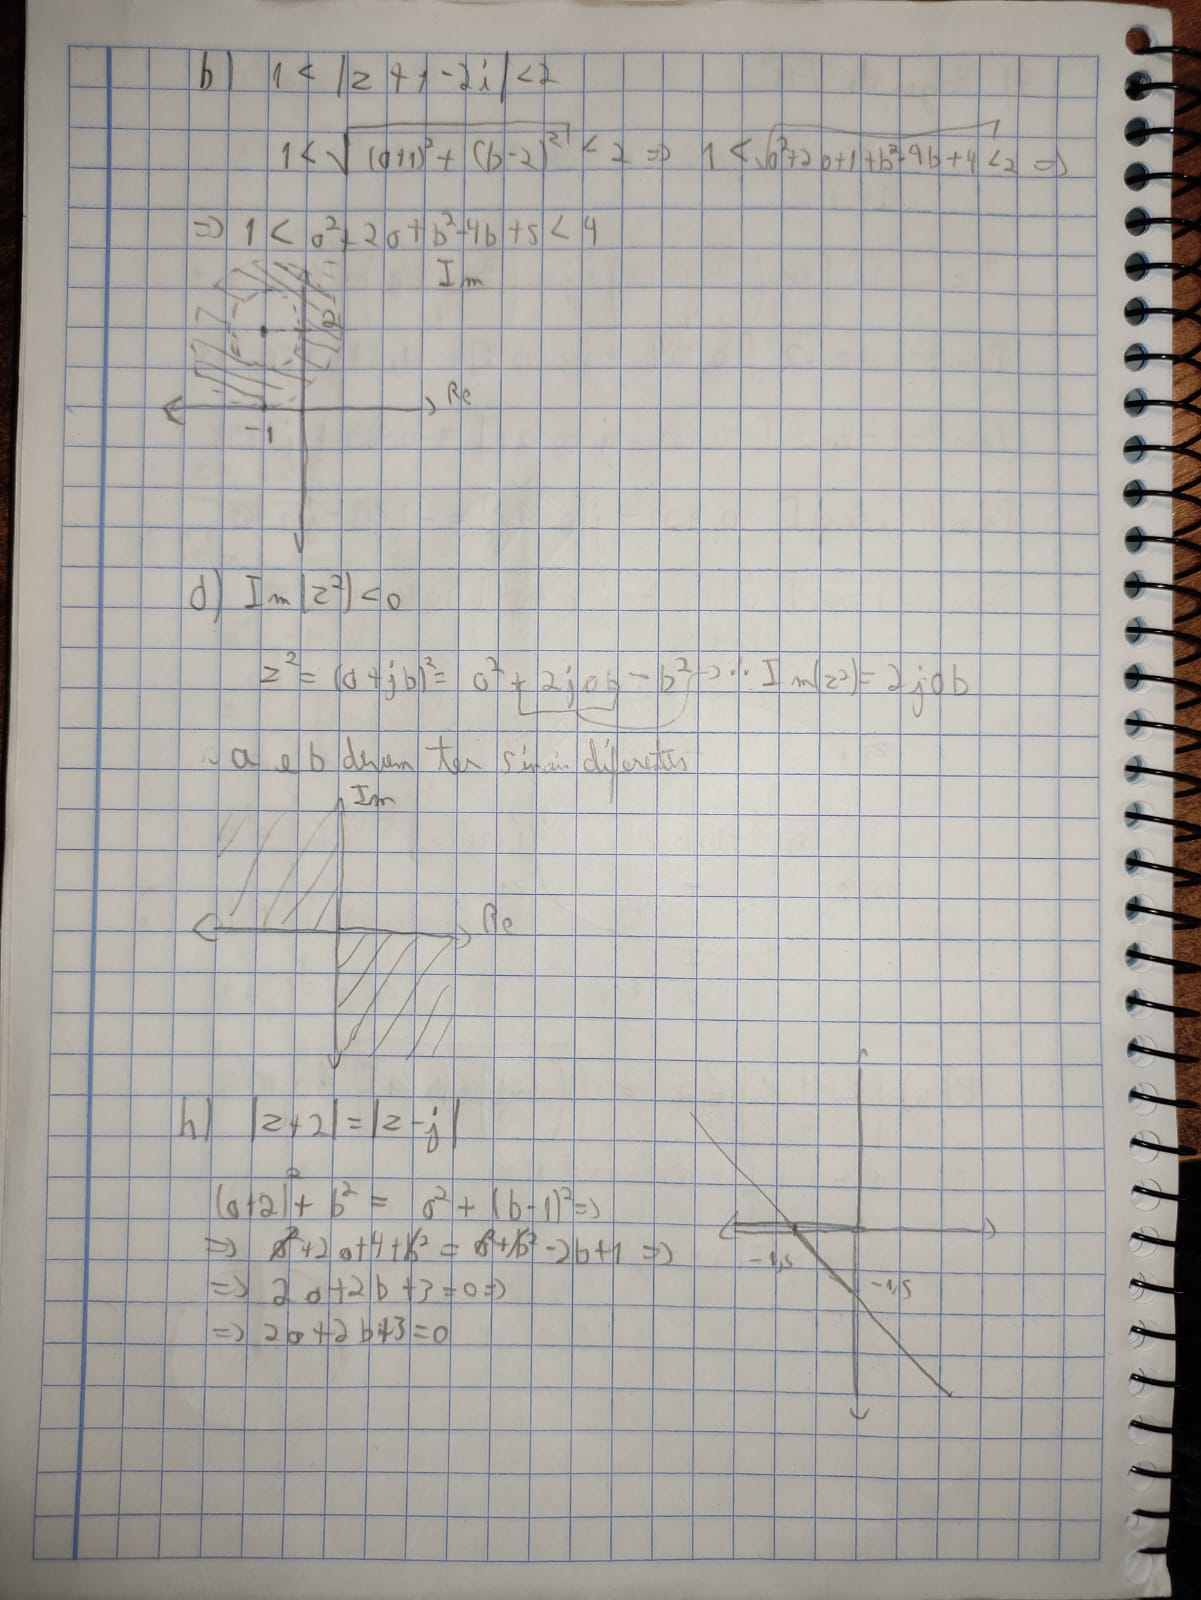 b) 1 < |z + 1 - 2i| < 2
1 < √((a+1)² + (b-2)²) < 2 ⇒ 1 < √(a²+2a+1+b²-4b+4) < 2 ⇒
⇒ 1 < a² + 2a + b² - 4b + 5 < 4
Im
2
Re
-1
d) Im(z²) < 0
z² = (a+jb)² = a² + 2jab - b² ⇒ ∴ Im(z²) = 2jab
a e b devem ter sinais diferentes
Im
Re
h) |z+2| = |z-j|
(a+2)² + b² = a² + (b-1)² ⇒
⇒ a²+2a+4+b² = a²+b²-2b+1 ⇒
⇒ 2a+2b+3=0 ⇒
⇒ 2a+2b+3=0
-1,5
-1,5